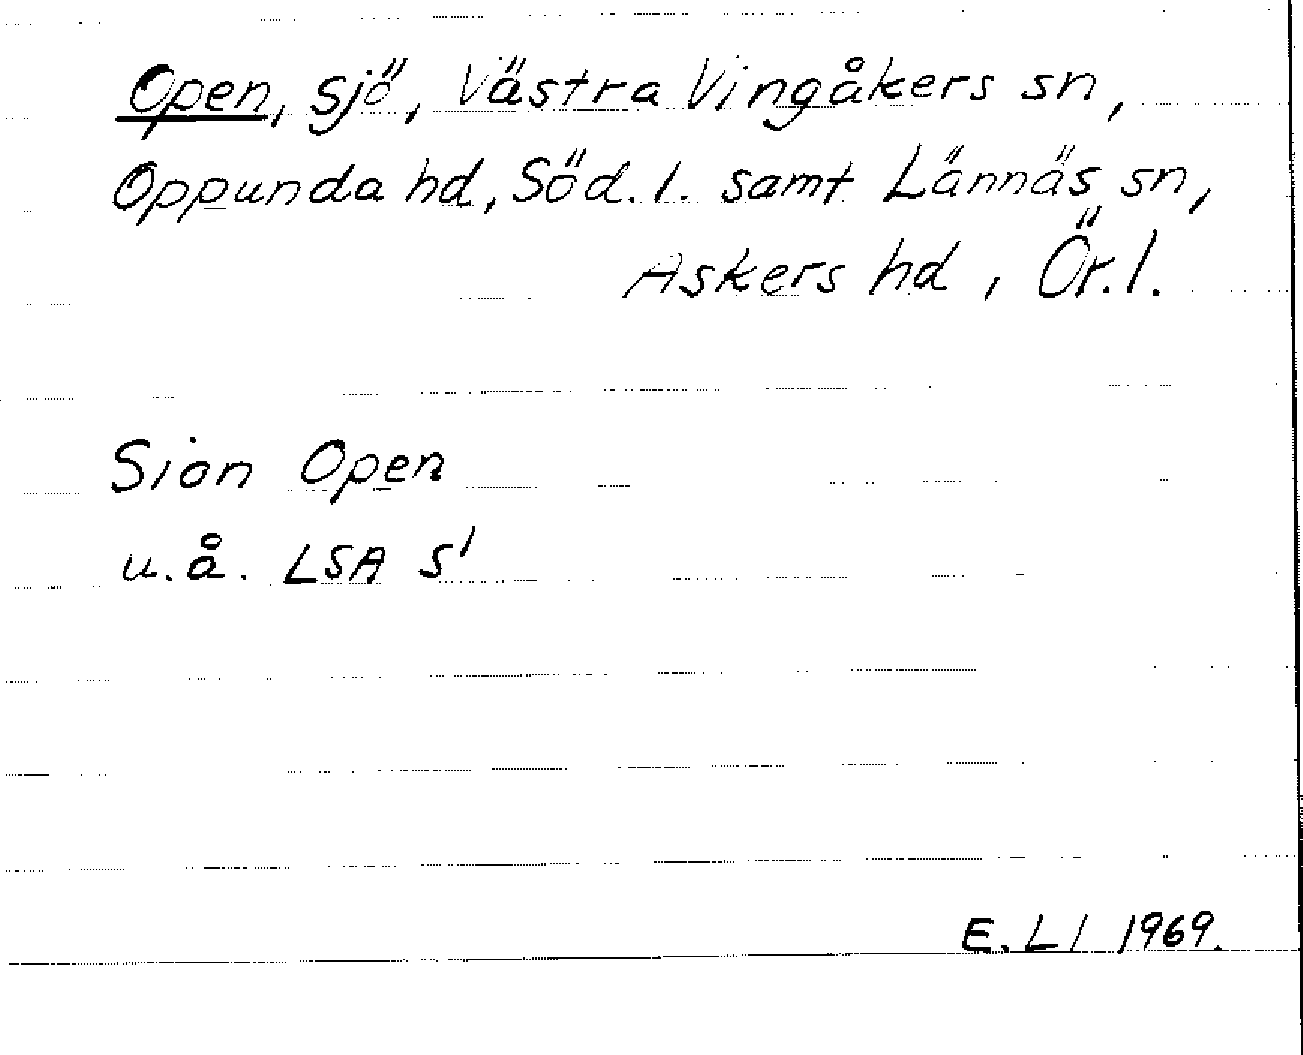 Open, sjö, Västra Vingåkers sn,
Oppunda hd, Söd.l. samt Lännäs sn,
Askers hd, Ör.l.
Siön Open
u.å. LSA S¹
E. Ll 1969.